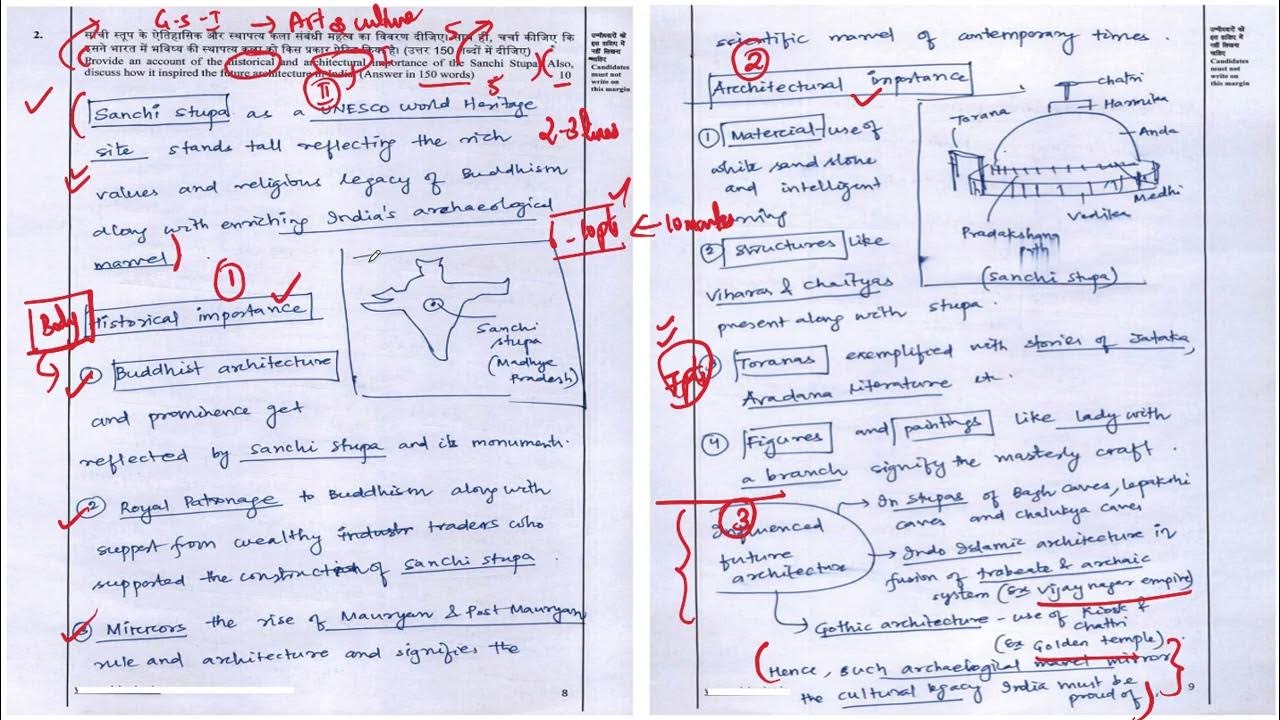 G-S-I → Art & culture
2. साँची स्तूप के ऐतिहासिक और स्थापत्य कला संबंधी महत्व का विवरण दीजिए। साथ ही, चर्चा कीजिए कि
इसने भारत में भविष्य की स्थापत्य कला को किस प्रकार प्रेरित किया है। (उत्तर 150 शब्दों में दीजिए)
Provide an account of the historical and architectural importance of the Sanchi Stupa. Also,
discuss how it inspired the future architecture in India. (Answer in 150 words) 10
उम्मीदवारों को
इस हाशिए में
नहीं लिखना
चाहिए
Candidates
must not
write on
this margin
5
I
II
5
Sanchi stupa as a UNESCO world Heritage
site stands tall reflecting the rich
2-3 lines
values and religious legacy of Buddhism
along with enriching India's archaeological
marvel
← 10 marks
1
Body
Historical importance
Sanchi
stupa
(Madhya
Pradesh)
1 Buddhist architecture
and prominence get
reflected by Sanchi stupa and its monuments.
2 Royal Patronage to Buddhism along with
support from wealthy traders who
supported the construction of Sanchi stupa.
3 Mirrors the rise of Mauryan & Post Mauryan
rule and architecture and signifies the
8
scientific marvel of contemporary times.
उम्मीदवारों को
इस हाशिए में
नहीं लिखना
चाहिए
Candidates
must not
write on
this margin
2
Arcchitectural importance
chatri
Harmika
Torana
Anda
Medhi
Vedika
Pradakshana
path
(Sanchi stupa)
1 Material - use of
white sand stone
and intelligent
2 Structures like
Viharas & chaityas
present along with stupa.
Toranas exemplified with stories of Jataka,
Avadana Literature etc.
4 Figures and paintings like lady with
a branch signify the masterly craft.
3
Influenced
future
architecture
→ In stupas of Bagh caves, Lepakshi
caves and Chalukya caves
→ Indo Islamic architecture in
fusion of trabeate & archaic
system (ex Vijaynagar empire)
→ Gothic architecture - use of Kiosk &
chattri
(ex Golden temple)
Hence, such archaeligical marvel mirror
the cultural legacy India must be
proud of.
9